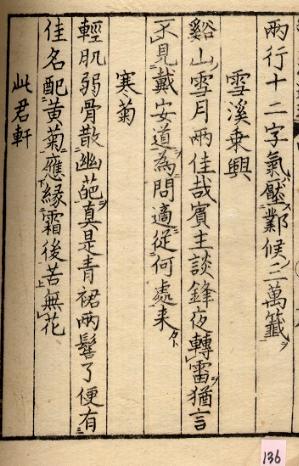 兩行十二字氣壓鄴候三萬籤
雪溪乘興
谿山雪月兩佳哉賓主談鋒夜轉雷猶言
不見戴安道為問適從何處来
寒菊
輕肌弱骨散幽葩真是青裙兩髻了便有
佳名配黄菊應緣霜後苦無花
此君軒
136